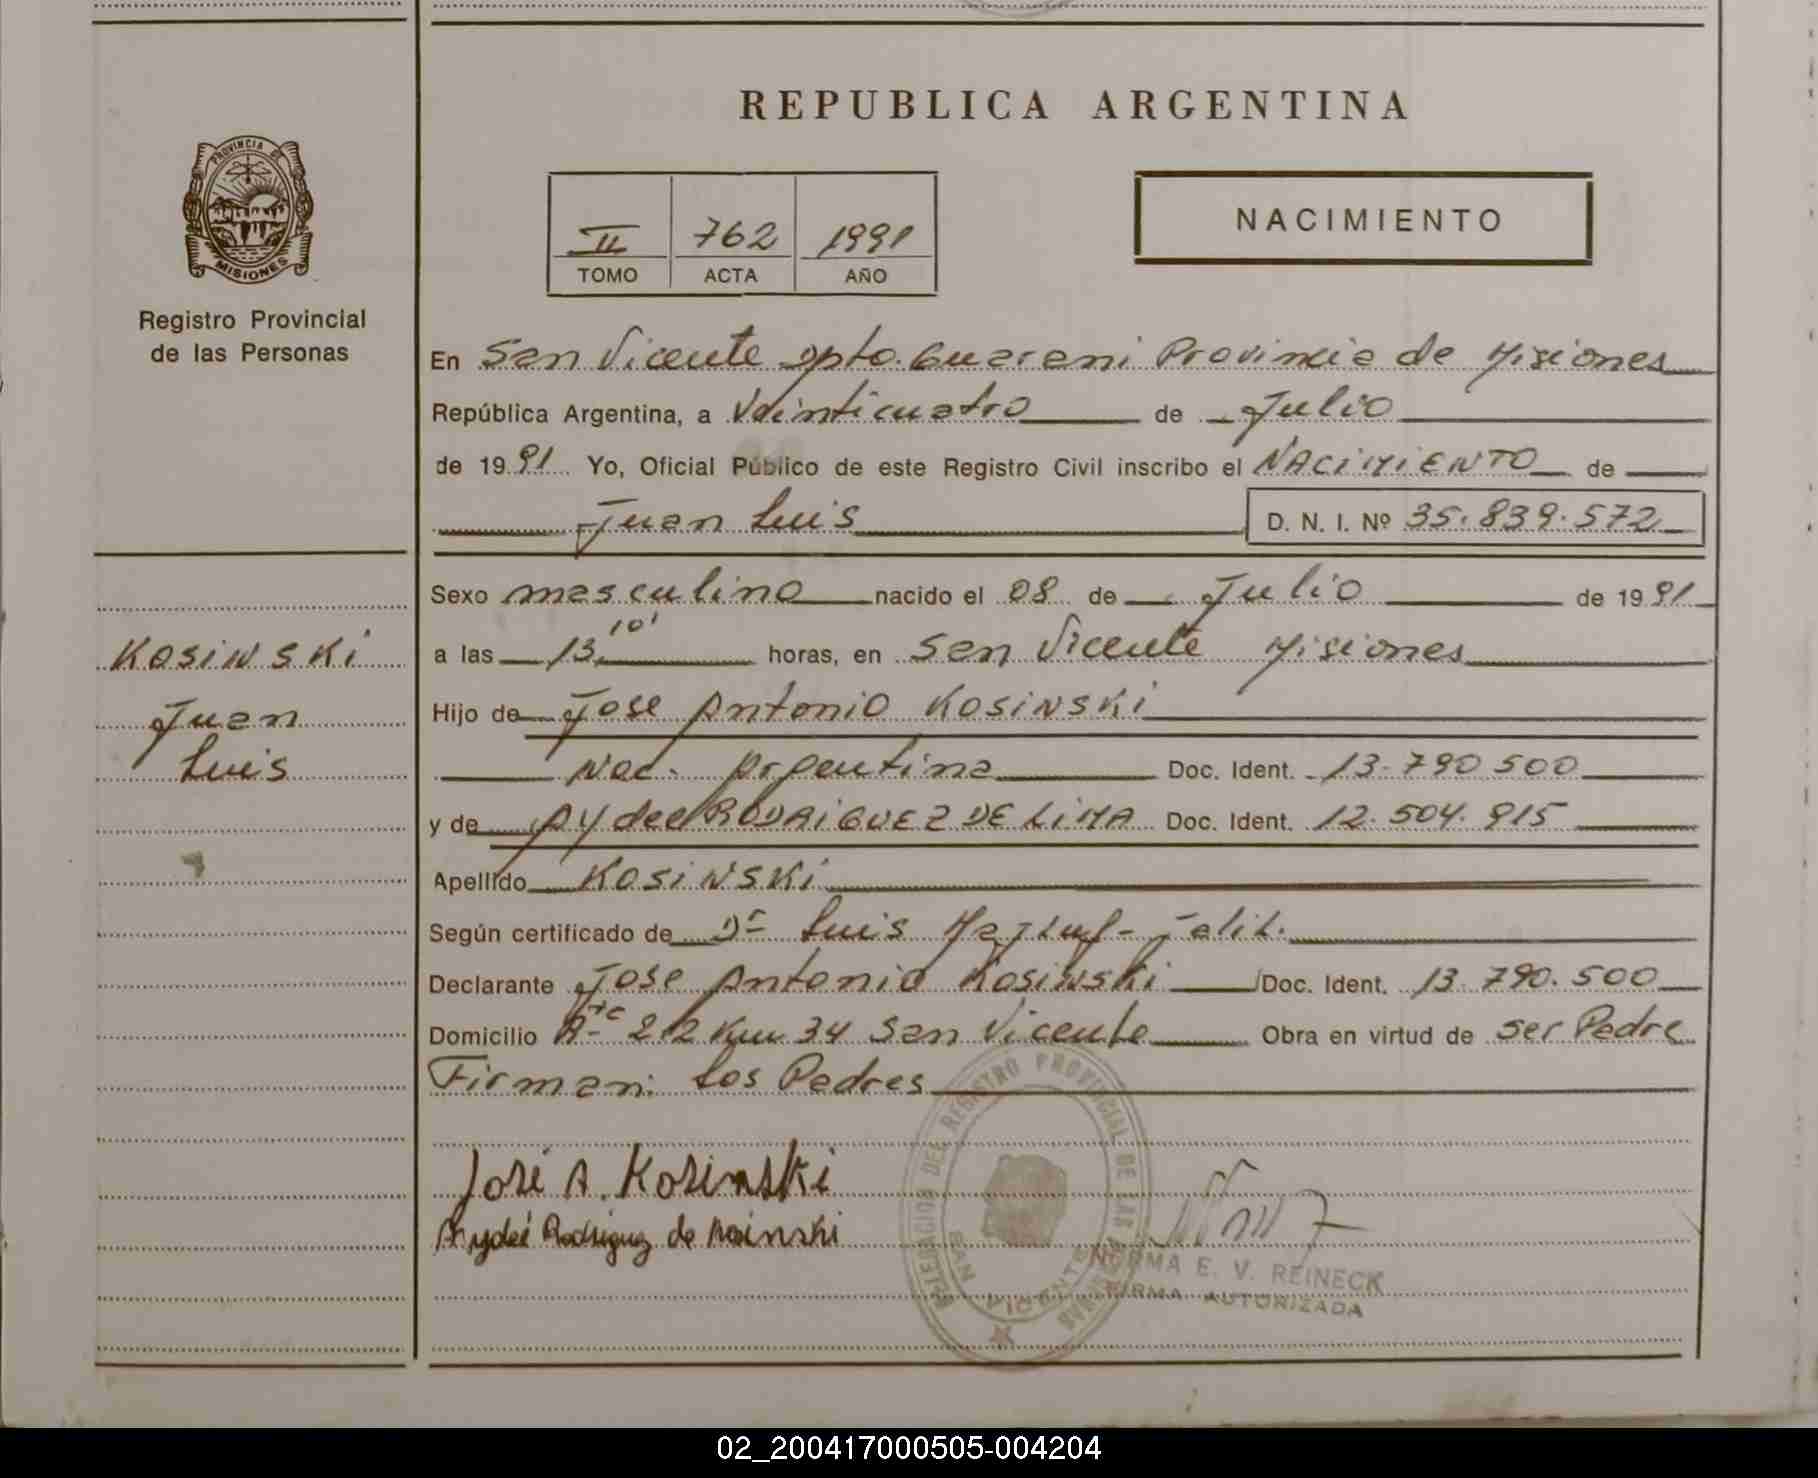 REPUBLICA ARGENTINA
PROVINCIA DE
MISIONES
Registro Provincial
de las Personas
II 762 1991
TOMO ACTA AÑO
NACIMIENTO
En San Vicente Dpto. Guarani Provincia de Misiones
República Argentina, a Veinticuatro de Julio
de 1991 Yo, Oficial Público de este Registro Civil inscribo el NACIMIENTO de
Juan Luis D. N. I. Nº 35.839.572
Sexo masculino nacido el 08 de Julio de 1991
a las 13,10' horas, en San Vicente Misiones
Hijo de Jose Antonio KOSINSKI
Nac. Argentina Doc. Ident. 13.790.500
y de Aydee RODRIGUEZ DE LIMA Doc. Ident. 12.504.915
Apellido KOSINSKI
Según certificado de Dr Luis
Declarante Jose Antonio Kosinski Doc. Ident. 13.790.500
Domicilio Rta 212 Km 34 San Vicente Obra en virtud de ser Padre
Firman: Los Padres
KOSINSKI
Juan
Luis
José A. Kosinski
Aydeé Rodriguez de Kosinski
DELEGACION DEL REGISTRO PROVINCIAL DE LAS PERSONAS
SAN VICENTE
NORMA E. V. REINECK
FIRMA AUTORIZADA
02_200417000505-004204